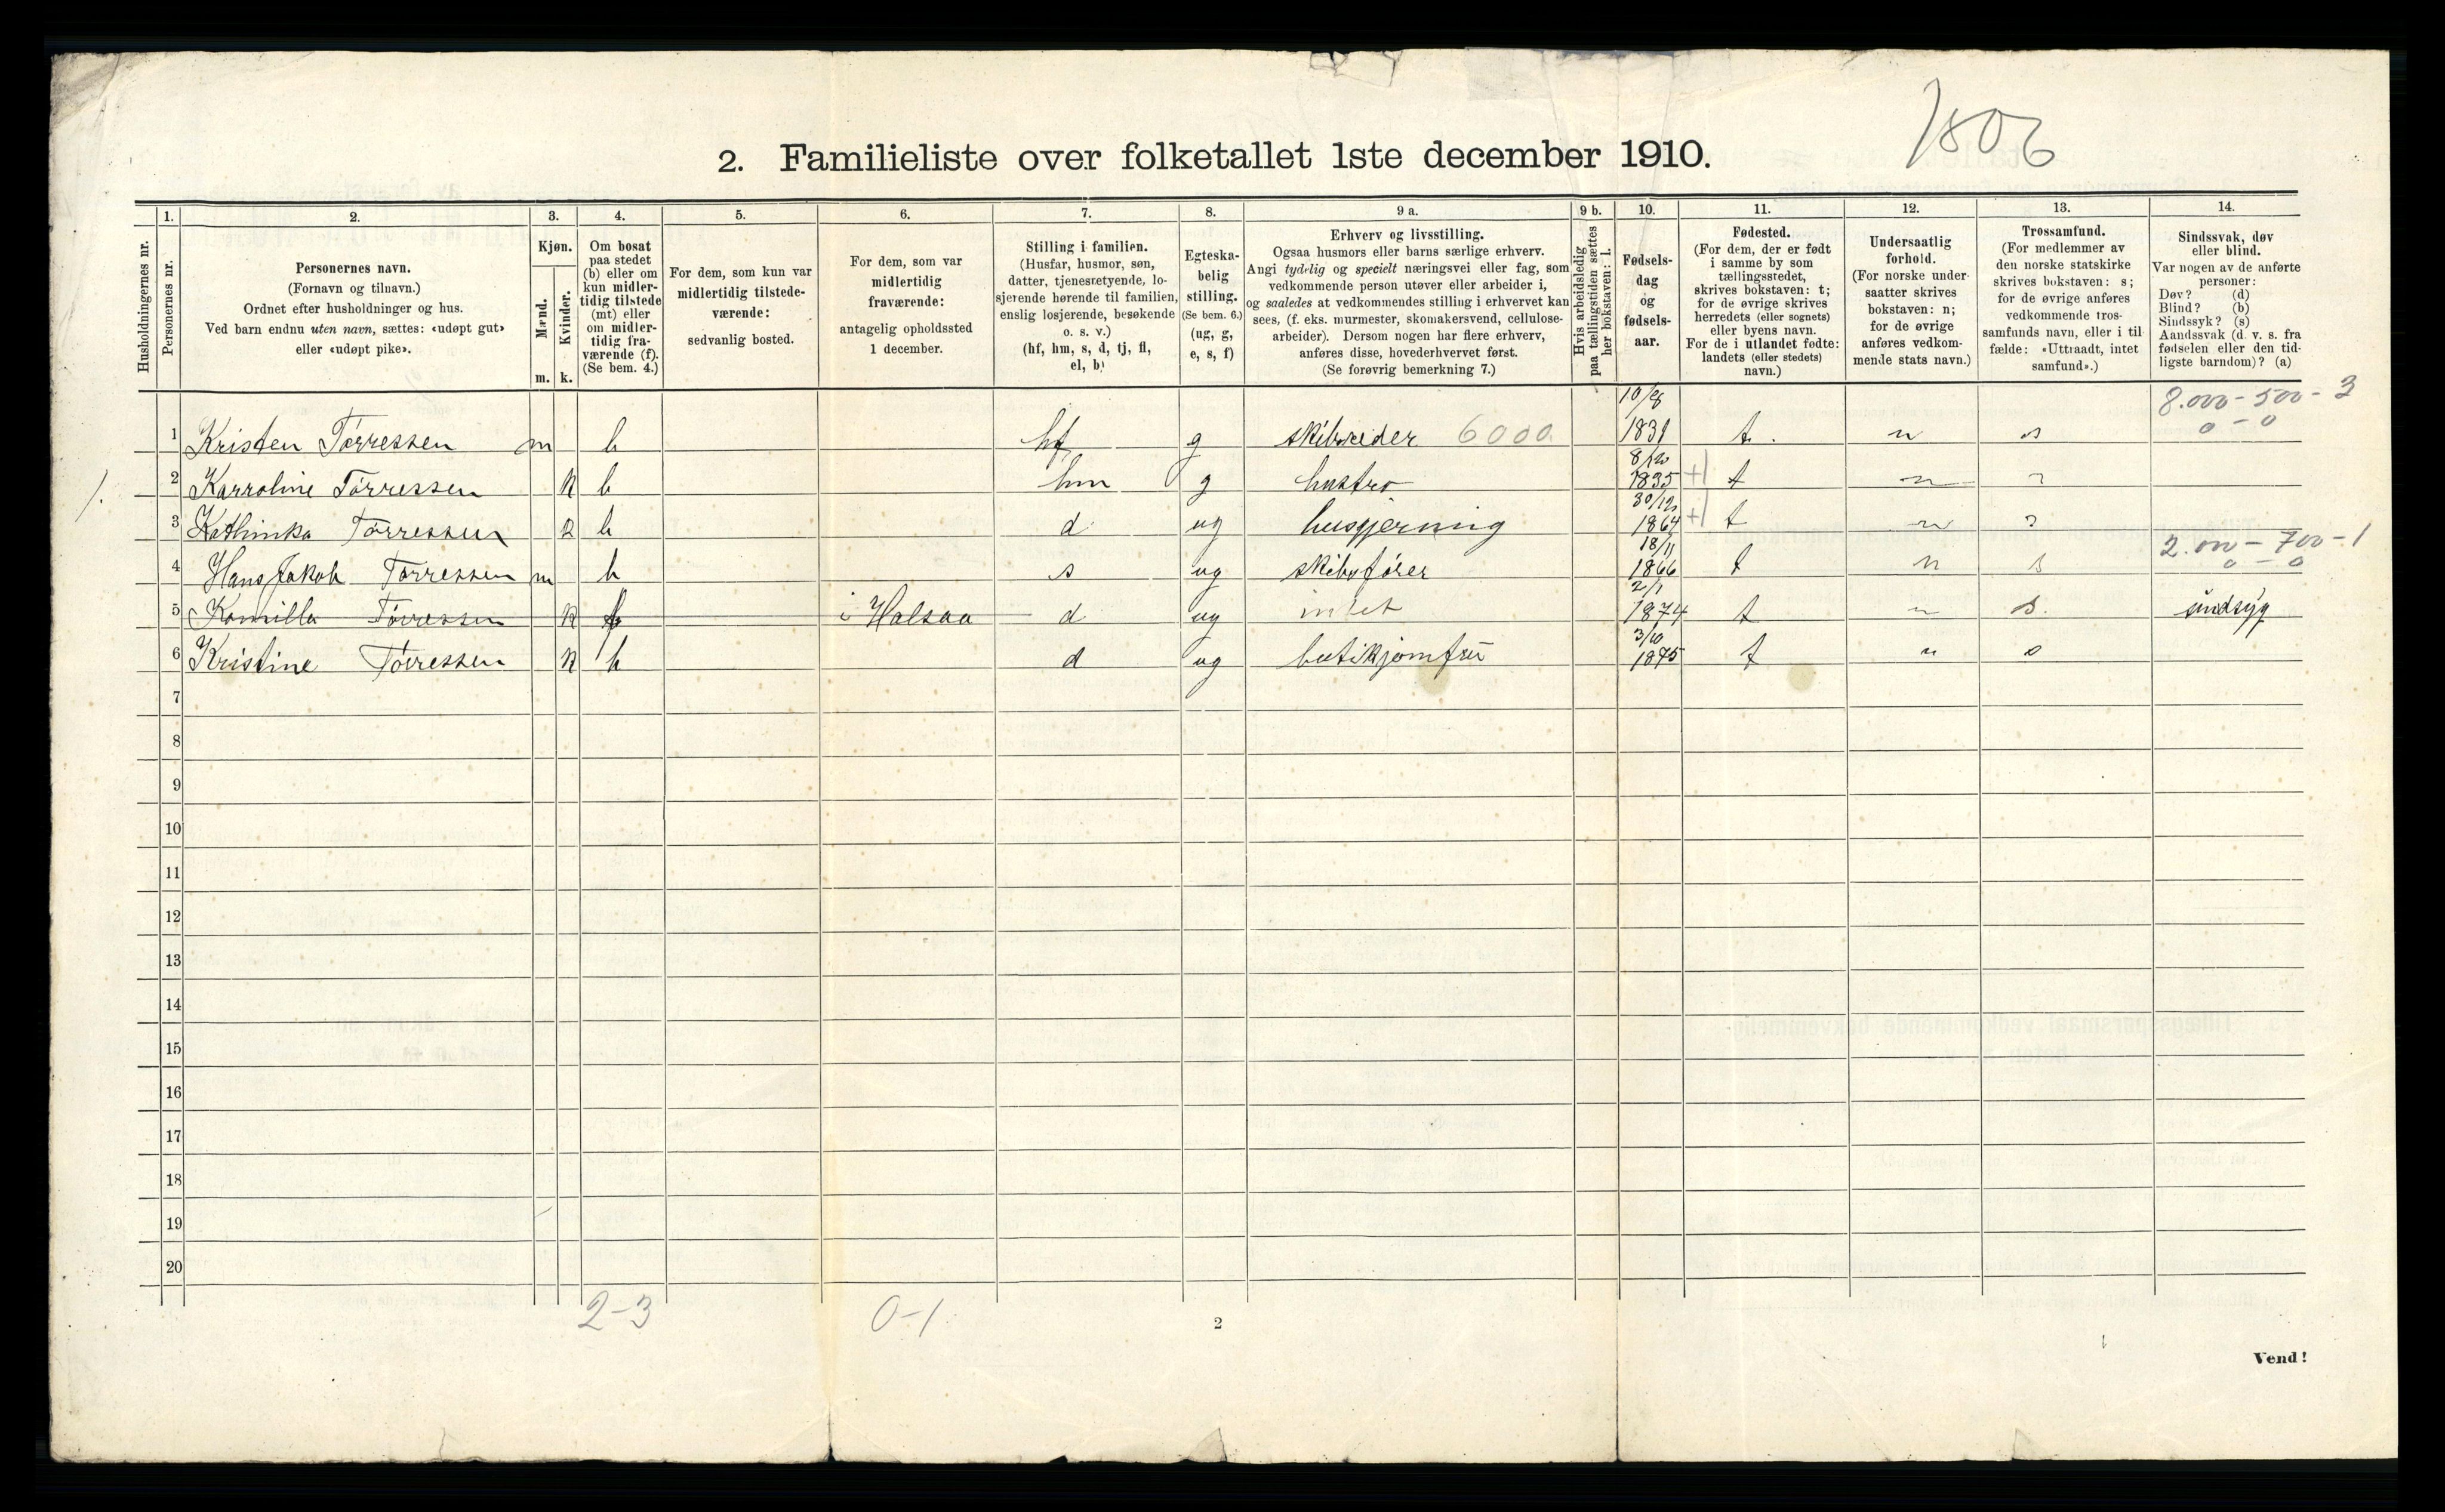 1806
2. Familieliste over folketallet 1ste december 1910.
Husholdningernes nr.
1.
Personernes nr.
2.
Personernes navn.
(Fornavn og tilnavn.)
Ordnet efter husholdninger og hus.
Ved barn endnu uten navn, sættes: «udøpt gut»
eller «udøpt pike».
3.
Kjøn.
Mænd.
Kvinder.
m. k.
4.
Om bosat
paa stedet
(b) eller om
kun midler-
tidig tilstede
(mt) eller
om midler-
tidig fra-
værende (f).
(Se bem. 4.)
5.
For dem, som kun var
midlertidig tilstede-
værende:
sedvanlig bosted.
6.
For dem, som var
midlertidig
fraværende:
antagelig opholdssted
1 december.
7.
Stilling i familien.
(Husfar, husmor, søn,
datter, tjenestetyende, lo-
sjerende hørende til familien,
enslig losjerende, besøkende
o. s. v.)
(hf, hm, s, d, tj, fl,
el, b)
8.
Egteska-
belig
stilling.
(Se bem. 6.)
(ug, g,
e, s, f)
9 a.
Erhverv og livsstilling.
Ogsaa husmors eller barns særlige erhverv.
Angi tydelig og specielt næringsvei eller fag, som
vedkommende person utøver eller arbeider i,
og saaledes at vedkommendes stilling i erhvervet kan
sees, (f. eks. murmester, skomakersvend, cellulose-
arbeider). Dersom nogen har flere erhverv,
anføres disse, hovederhvervet først.
(Se forøvrig bemerkning 7.)
9 b.
Hvis arbeidsledig
paa tællingstiden sættes
her bokstaven: l.
10.
Fødsels-
dag
og
fødsels-
aar.
11.
Fødested.
(For dem, der er født
i samme by som
tællingsstedet,
skrives bokstaven: t;
for de øvrige skrives
herredets (eller sognets)
eller byens navn.
For de i utlandet fødte:
landets (eller stedets)
navn.)
12.
Undersaatlig
forhold.
(For norske under-
saatter skrives
bokstaven: n;
for de øvrige
anføres vedkom-
mende stats navn.)
13.
Trossamfund.
(For medlemmer av
den norske statskirke
skrives bokstaven: s;
for de øvrige anføres
vedkommende tros-
samfunds navn, eller i til-
fælde: «Uttraadt, intet
samfund».)
14.
Sindssvak, døv
eller blind.
Var nogen av de anførte
personer:
Døv? (d)
Blind? (b)
Sindssyk? (s)
Aandssvak (d. v. s. fra
fødselen eller den tid-
ligste barndom)? (a)
8.000 - 500 - 3
0 - 0
1 Kristen Tørressen m b hf g skibsreder 6000 1831 t. n s
1.
2 Karroline Tørressen k b hm g hustru 8/12 1835 +1 t n s
3 Kathinka Tørressen k b d ug husgjerning 30/12 1864 +1 t n s
2.000 - 700 - 1
0 - 0
4 Hans Jakob Tørressen m b s ug skibsfører 18/11 1866 t n s
5 Kamilla Tørressen k i Halsaa d ug intet 2/1 1874 t n s. sindsyg
6 Kristine Tørressen k b d ug butikjomfru 3/10 1875 t n s
7
8
9
10
11
12
13
14
15
16
17
18
19
20
2-3 0-1
2
Vend!